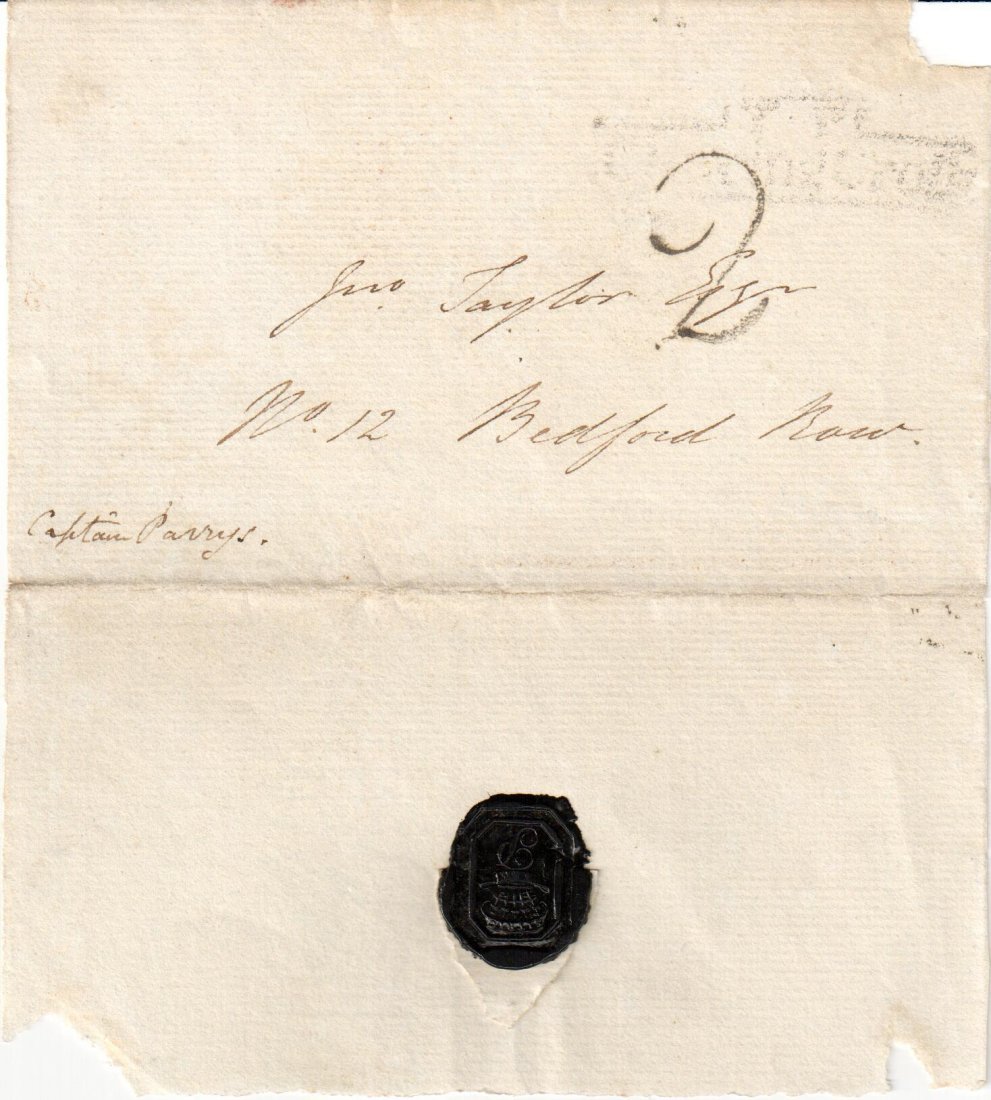 2
Jno. Taylor Esqr
No. 12 Bedford Row.
Captain Parrys.